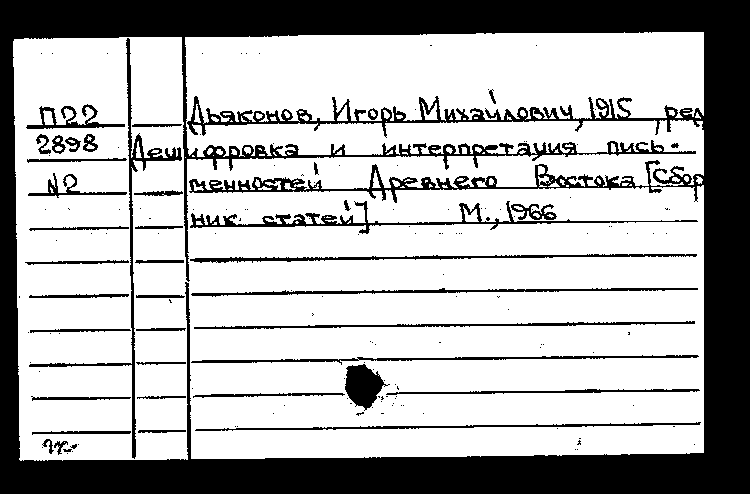 П22 Дьяконов, Игорь Михайлович, 1915 , ред
2898 Дешифровка и интерпретация пись-
N2 менностей Древнего Востока [Сбор
ник статей]. М., 1966